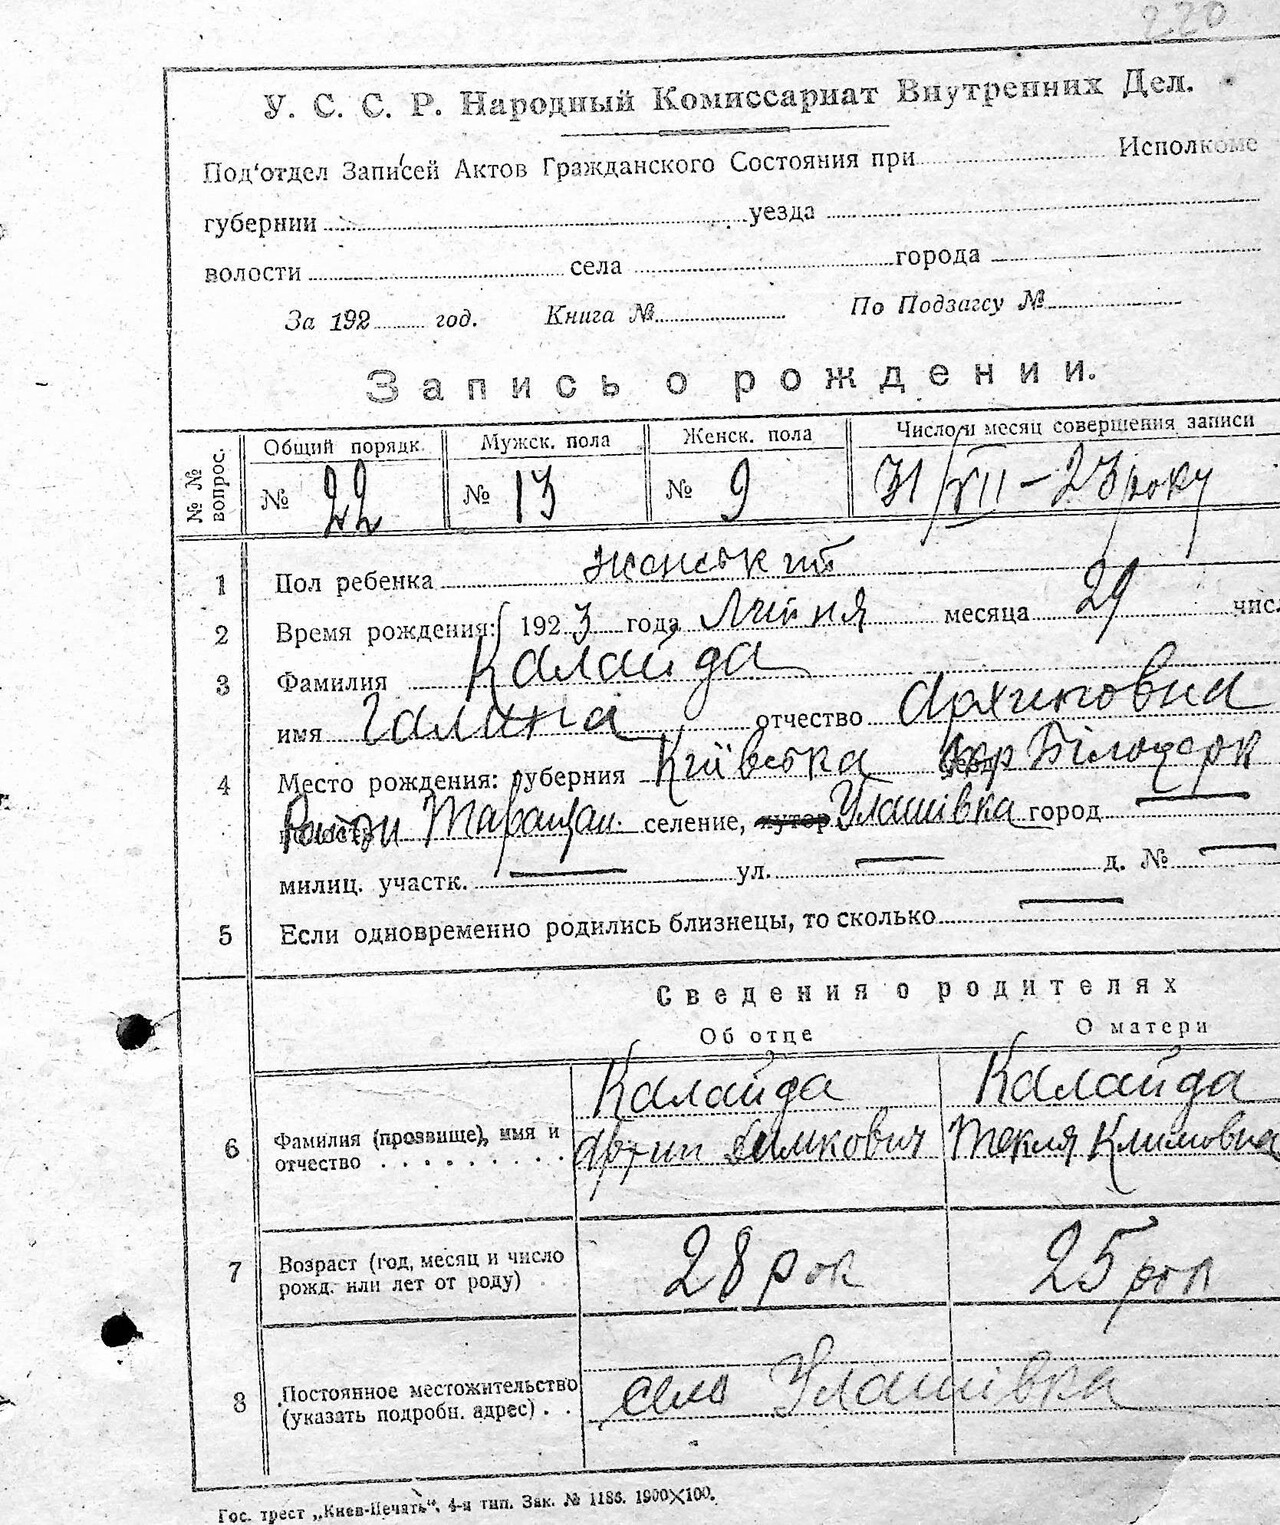 220
У. С. С. Р. Народный Комиссариат Внутренних Дел.
Под'отдел Записей Актов Гражданского Состояния при Исполкоме
губернии уезда
волости села города
За 192 год. Книга № По Подзагсу №
Запись о рождении.
№ № вопрос. Общий порядк. Мужск. пола Женск. пола Число и месяц совершения записи
№ 22 № 13 № 9 31/VII – 23 року
1 Пол ребенка жонський
2 Время рождения: 1923 года Липня месяца 29 числ
3 Фамилия Калайда
имя Галина отчество Архиповна
4 Место рождения: губерния Київська Окр Білоцерк
Район Таращан. селение, хутор Улашівка город —
милиц. участк. — ул. — д. № —
5 Если одновременно родились близнецы, то сколько —
Сведения о родителях
Об отце О матери
Калайда Калайда
6 Фамилия (прозвище), имя и отчество Архип Текля Климовна
7 Возраст (год, месяц и число рожд. или лет от роду) 28 рок 25 рок
8 Постоянное местожительство (указать подробн. адрес) село Улашівка
Гос. трест „Киев-Печать“, 4-я тип. Зак. № 1186. 1900×100.